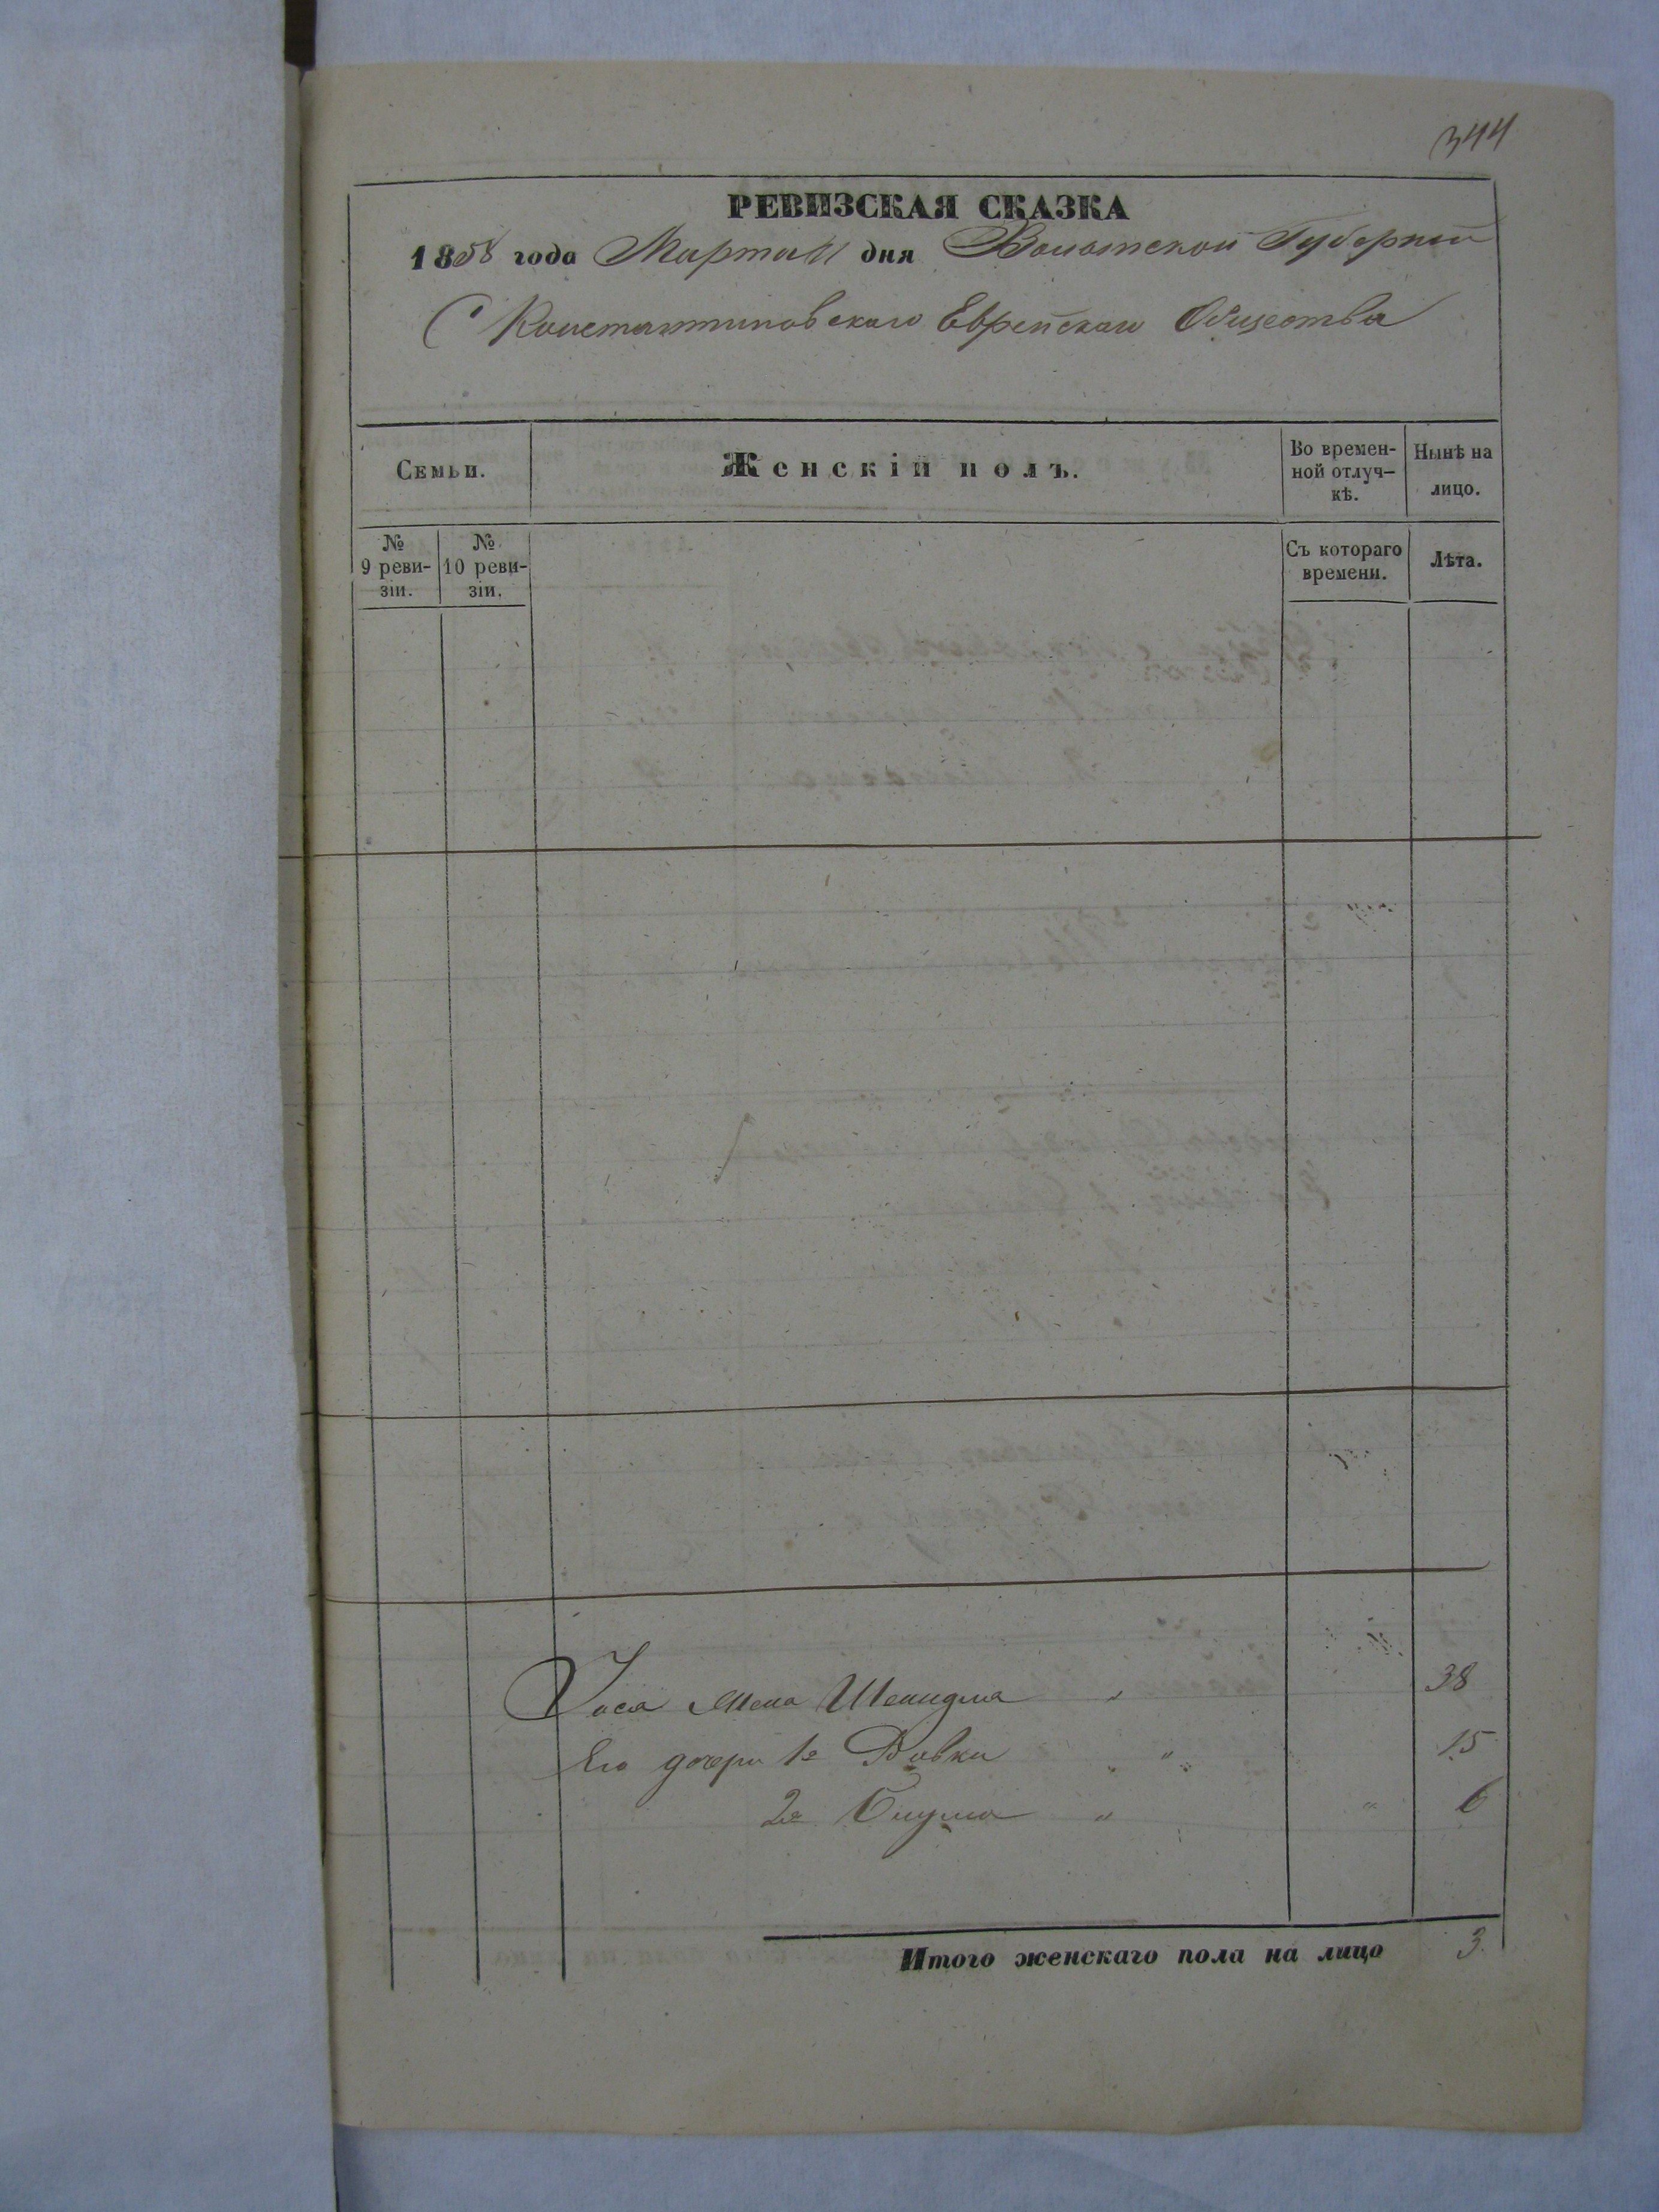 344
РЕВИЗСКАЯ СКАЗКА
1858 года Марта 11 дня Волынской Губернии
С Константиновскаго Еврейскаго Общества
Семьи.
Женскій полъ.
Во времен-
ной отлуч-
кѣ.
Нынѣ на
лицо.
№
9 реви-
зіи.
№
10 реви-
зіи.
Съ котораго
времени.
Лѣта.
жена 38
Его дочери 1я 15
2я 6
Итого женскаго пола на лицо 3